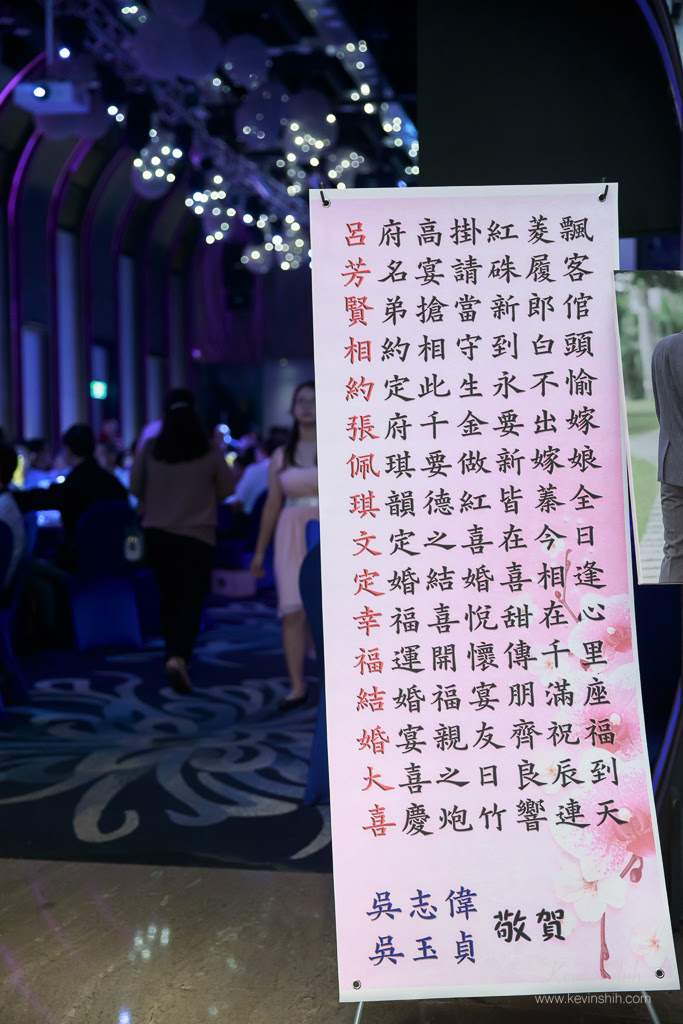 呂府高掛紅菱飄
芳名宴請硃履客
賢弟搶當新郎倌
相約相守到白頭
約定此生永不愉
張府千金要出嫁
佩琪要做新嫁娘
琪韻德紅皆蓁全
文定之喜在今日
定婚結婚喜相逢
幸福喜悅甜在心
福運開懷傳千里
結婚福宴朋滿座
婚宴親友齊祝福
大喜之日良辰到
喜慶炮竹響連天
吳志偉
吳玉貞
敬賀
www.kevinshih.com